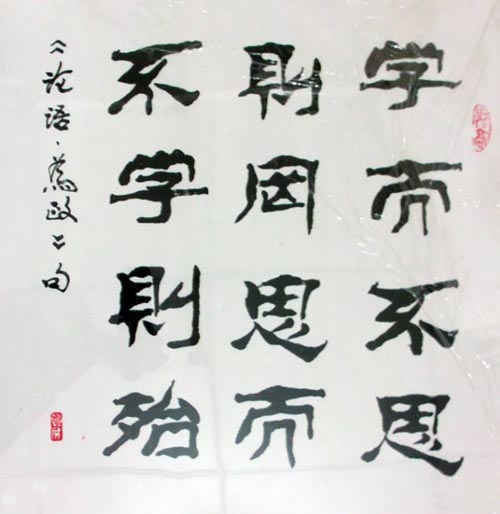 学而不思
則罔思而
不学則殆
《论语·為政》句